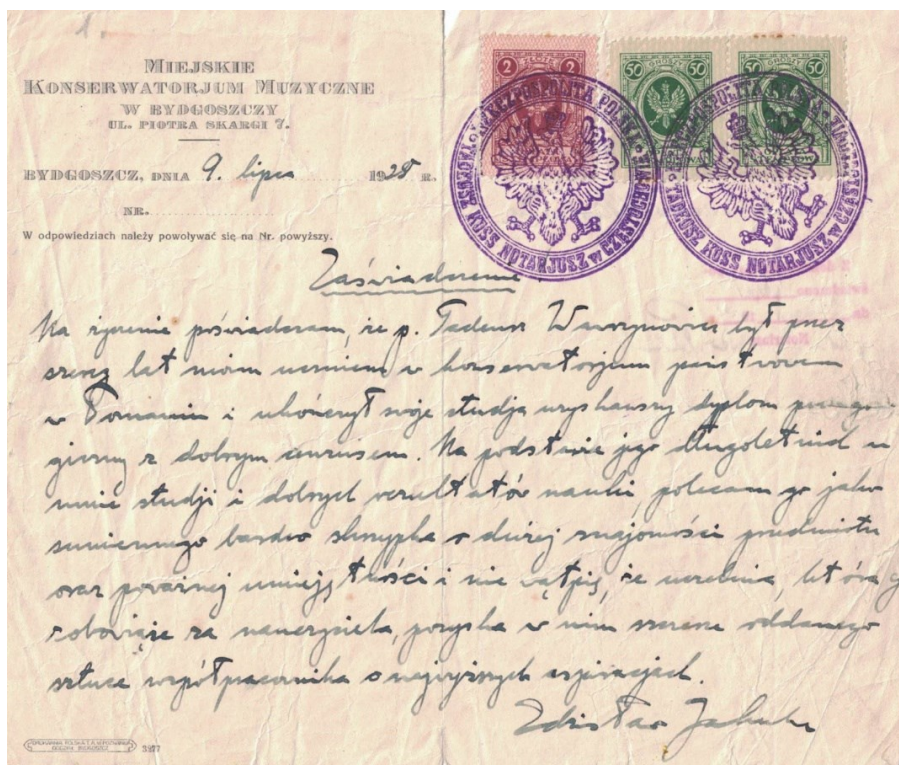 1.
MIEJSKIE
KONSERWATORJUM MUZYCZNE
W BYDGOSZCZY
UL. PIOTRA SKARGI 7.
BYDGOSZCZ, DNIA 9. lipca 1928 R.
NR.
W odpowiedziach należy powoływać się na Nr. powyższy.
2 ZŁOTE 2
50 GROSZY 50
50 GROSZY 50
RZECZPOSPOLITA POLSKA
TADEUSZ KOSS NOTARJUSZ w CZĘSTOCHOWIE
RZECZPOSPOLITA POLSKA
TADEUSZ KOSS NOTARJUSZ w CZĘSTOCHOWIE
Zaświadczenie
Na życzenie poświadczam, że p. Tadeusz Wawrzynowicz był przez
szereg lat moim uczniem w konserwatorjum państwowem
w Poznaniu i ukończył swoje studja uzyskawszy dyplom
z dobrym cenzusem. Na podstawie jego długoletnich u
mnie studji i dobrych rezultatów nauki, polecam go jako
sumiennego bardzo skrzypka o dużej znajomości przedmiotu
oraz poważnej umiejętności i nie wątpię, że uczelnia, która go
zobowiąże za nauczyciela, pozyska w nim szczerze oddanego
sztuce współpracownika o najwyższych aspiracjach.
Zdzisław Jahnke
3977